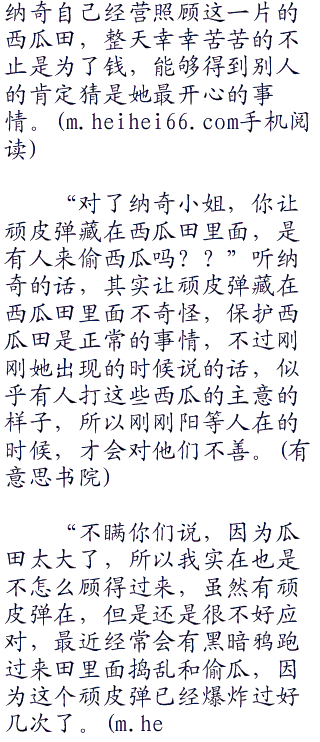 纳奇自己经营照顾这一片的
西瓜田，整天幸幸苦苦的不
止是为了钱，能够得到别人
的肯定猜是她最开心的事
情。(m.heihei66.com手机阅
读)
“对了纳奇小姐，你让
顽皮弹藏在西瓜田里面，是
有人来偷西瓜吗？？”听纳
奇的话，其实让顽皮弹藏在
西瓜田里面不奇怪，保护西
瓜田是正常的事情，不过刚
刚她出现的时候说的话，似
乎有人打这些西瓜的主意的
样子，所以刚刚阳等人在的
时候，才会对他们不善。(有
意思书院)
“不瞒你们说，因为瓜
田太大了，所以我实在也是
不怎么顾得过来，虽然有顽
皮弹在，但是还是很不好应
对，最近经常会有黑暗鸦跑
过来田里面捣乱和偷瓜，因
为这个顽皮弹已经爆炸过好
几次了。(m.he